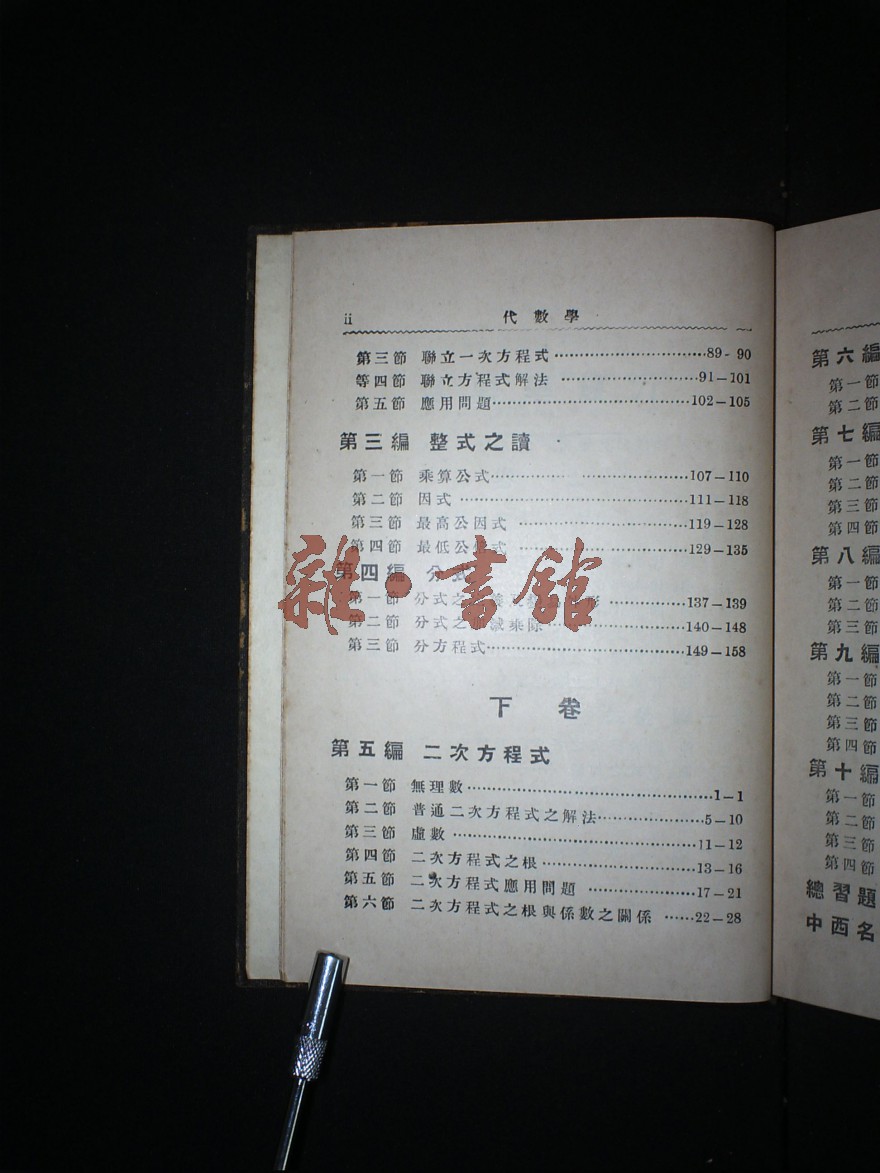 ii 代數學
第三節 聯立一次方程式 89-90
等四節 聯立方程式解法 91-101
第五節 應用問題 102-105
第三編 整式之讀
第一節 乘算公式 107-110
第二節 因式 111-118
第三節 最高公因式 119-128
第四節 最低公倍式 129-135
第四編 分式
第一節 分式之 形 137-139
第二節 分式之 減乘除 140-148
第三節 分方程式 149-158
下卷
第五編 二次方程式
第一節 無理數 1-1
第二節 普通二次方程式之解法 5-10
第三節 虛數 11-12
第四節 二次方程式之根 13-16
第五節 二次方程式應用問題 17-21
第六節 二次方程式之根與係數之關係 22-28
雜·書館
第六編
第一節
第二節
第七編
第一節
第二節
第三節
第四節
第八編
第一節
第二節
第三節
第九編
第一節
第二節
第三節
第四節
第十編
第一節
第二節
第三節
第四節
總習題
中西名